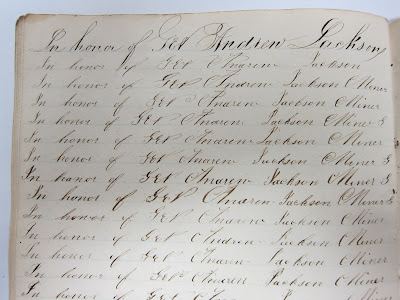 In honor of Gen Andrew Jackson
In honor of Gen Andrew Jackson
In honor of Gen Andrew Jackson Miner
In honor of Gen Andrew Jackson Miner
In honor of Gen Andrew Jackson Miner G
In honor of Gen Andrew Jackson Miner G
In honor of Gen Andrew Jackson Miner G
In honor of Gen Andrew Jackson Miner G
In honor of Gen Andrew Jackson Miner G
In honor of Gen Andrew Jackson Miner
In honor of Gen Andrew Jackson Miner
In honor of Gen Andrew Jackson Miner
In honor of Gen Andrew Jackson Miner
In honor of Gen Andrew Jackson Miner